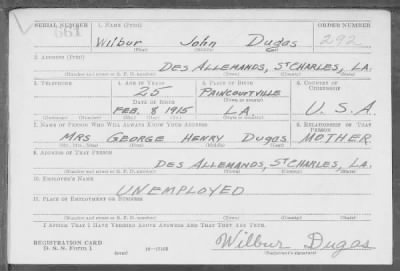 SERIAL NUMBER 1. NAME (Print) ORDER NUMBER
661 Wilbur John Dugas 292
(First) (Middle) (Last)
2. ADDRESS (Print)
DES ALLEMANDS, ST CHARLES, LA.
(Number and street or R. F. D. number) (Town) (County) (State)
3. TELEPHONE 4. AGE IN YEARS 5. PLACE OF BIRTH 6. COUNTRY OF CITIZENSHIP
25 PAINCOURTVILLE
DATE OF BIRTH (Town or county)
FEB. 8 1915 LA. U.S.A.
(Mo.) (Day) (Yr.) (State or country)
7. NAME OF PERSON WHO WILL ALWAYS KNOW YOUR ADDRESS 8. RELATIONSHIP OF THAT PERSON
MRS GEORGE HENRY DUGAS MOTHER
(Mr., Mrs., Miss) (First) (Middle) (Last)
9. ADDRESS OF THAT PERSON
DES ALLEMANDS, ST CHARLES, LA.
(Number and street or R. F. D. number) (Town) (County) (State)
10. EMPLOYER'S NAME
UNEMPLOYED
11. PLACE OF EMPLOYMENT OR BUSINESS
(Number and street or R. F. D. number) (Town) (County) (State)
I AFFIRM THAT I HAVE VERIFIED ABOVE ANSWERS AND THAT THEY ARE TRUE.
REGISTRATION CARD
D. S. S. Form 1 (over) Wilbur Dugas
(Registrant's signature)